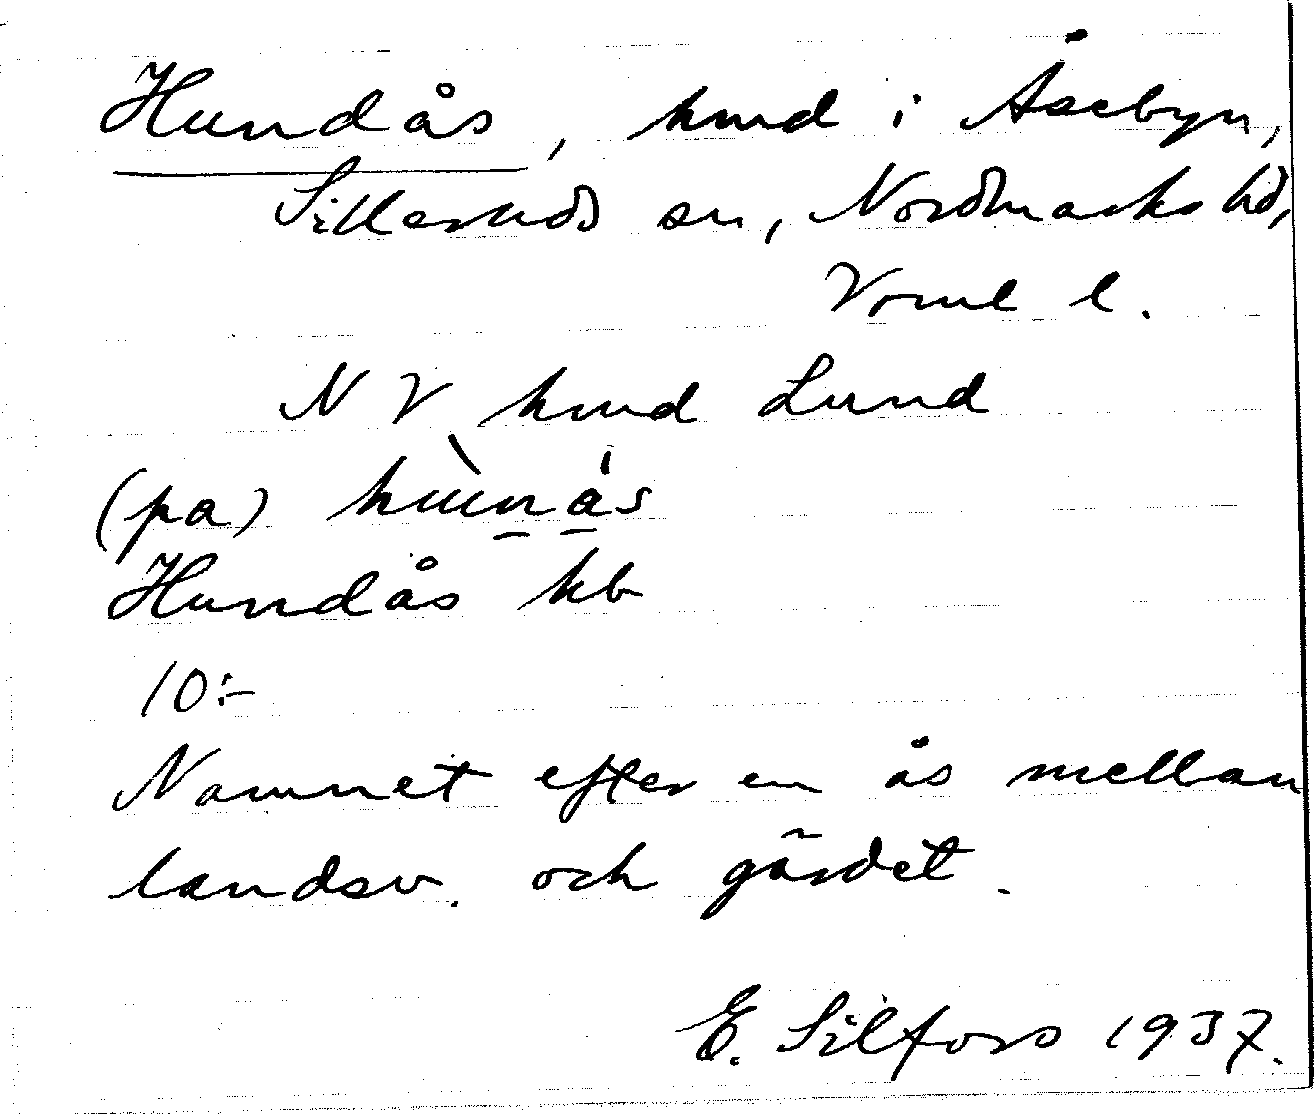 Hundås, hmd i Åsebyn,
Silleruds sn, Nordmarks hd,
Verml l.
N V hmd Lund
(pa) hùnás
Hundås kb
10:-
Namnet efter en ås mellan
landsv. och gärdet.
E. Silfors 1937.